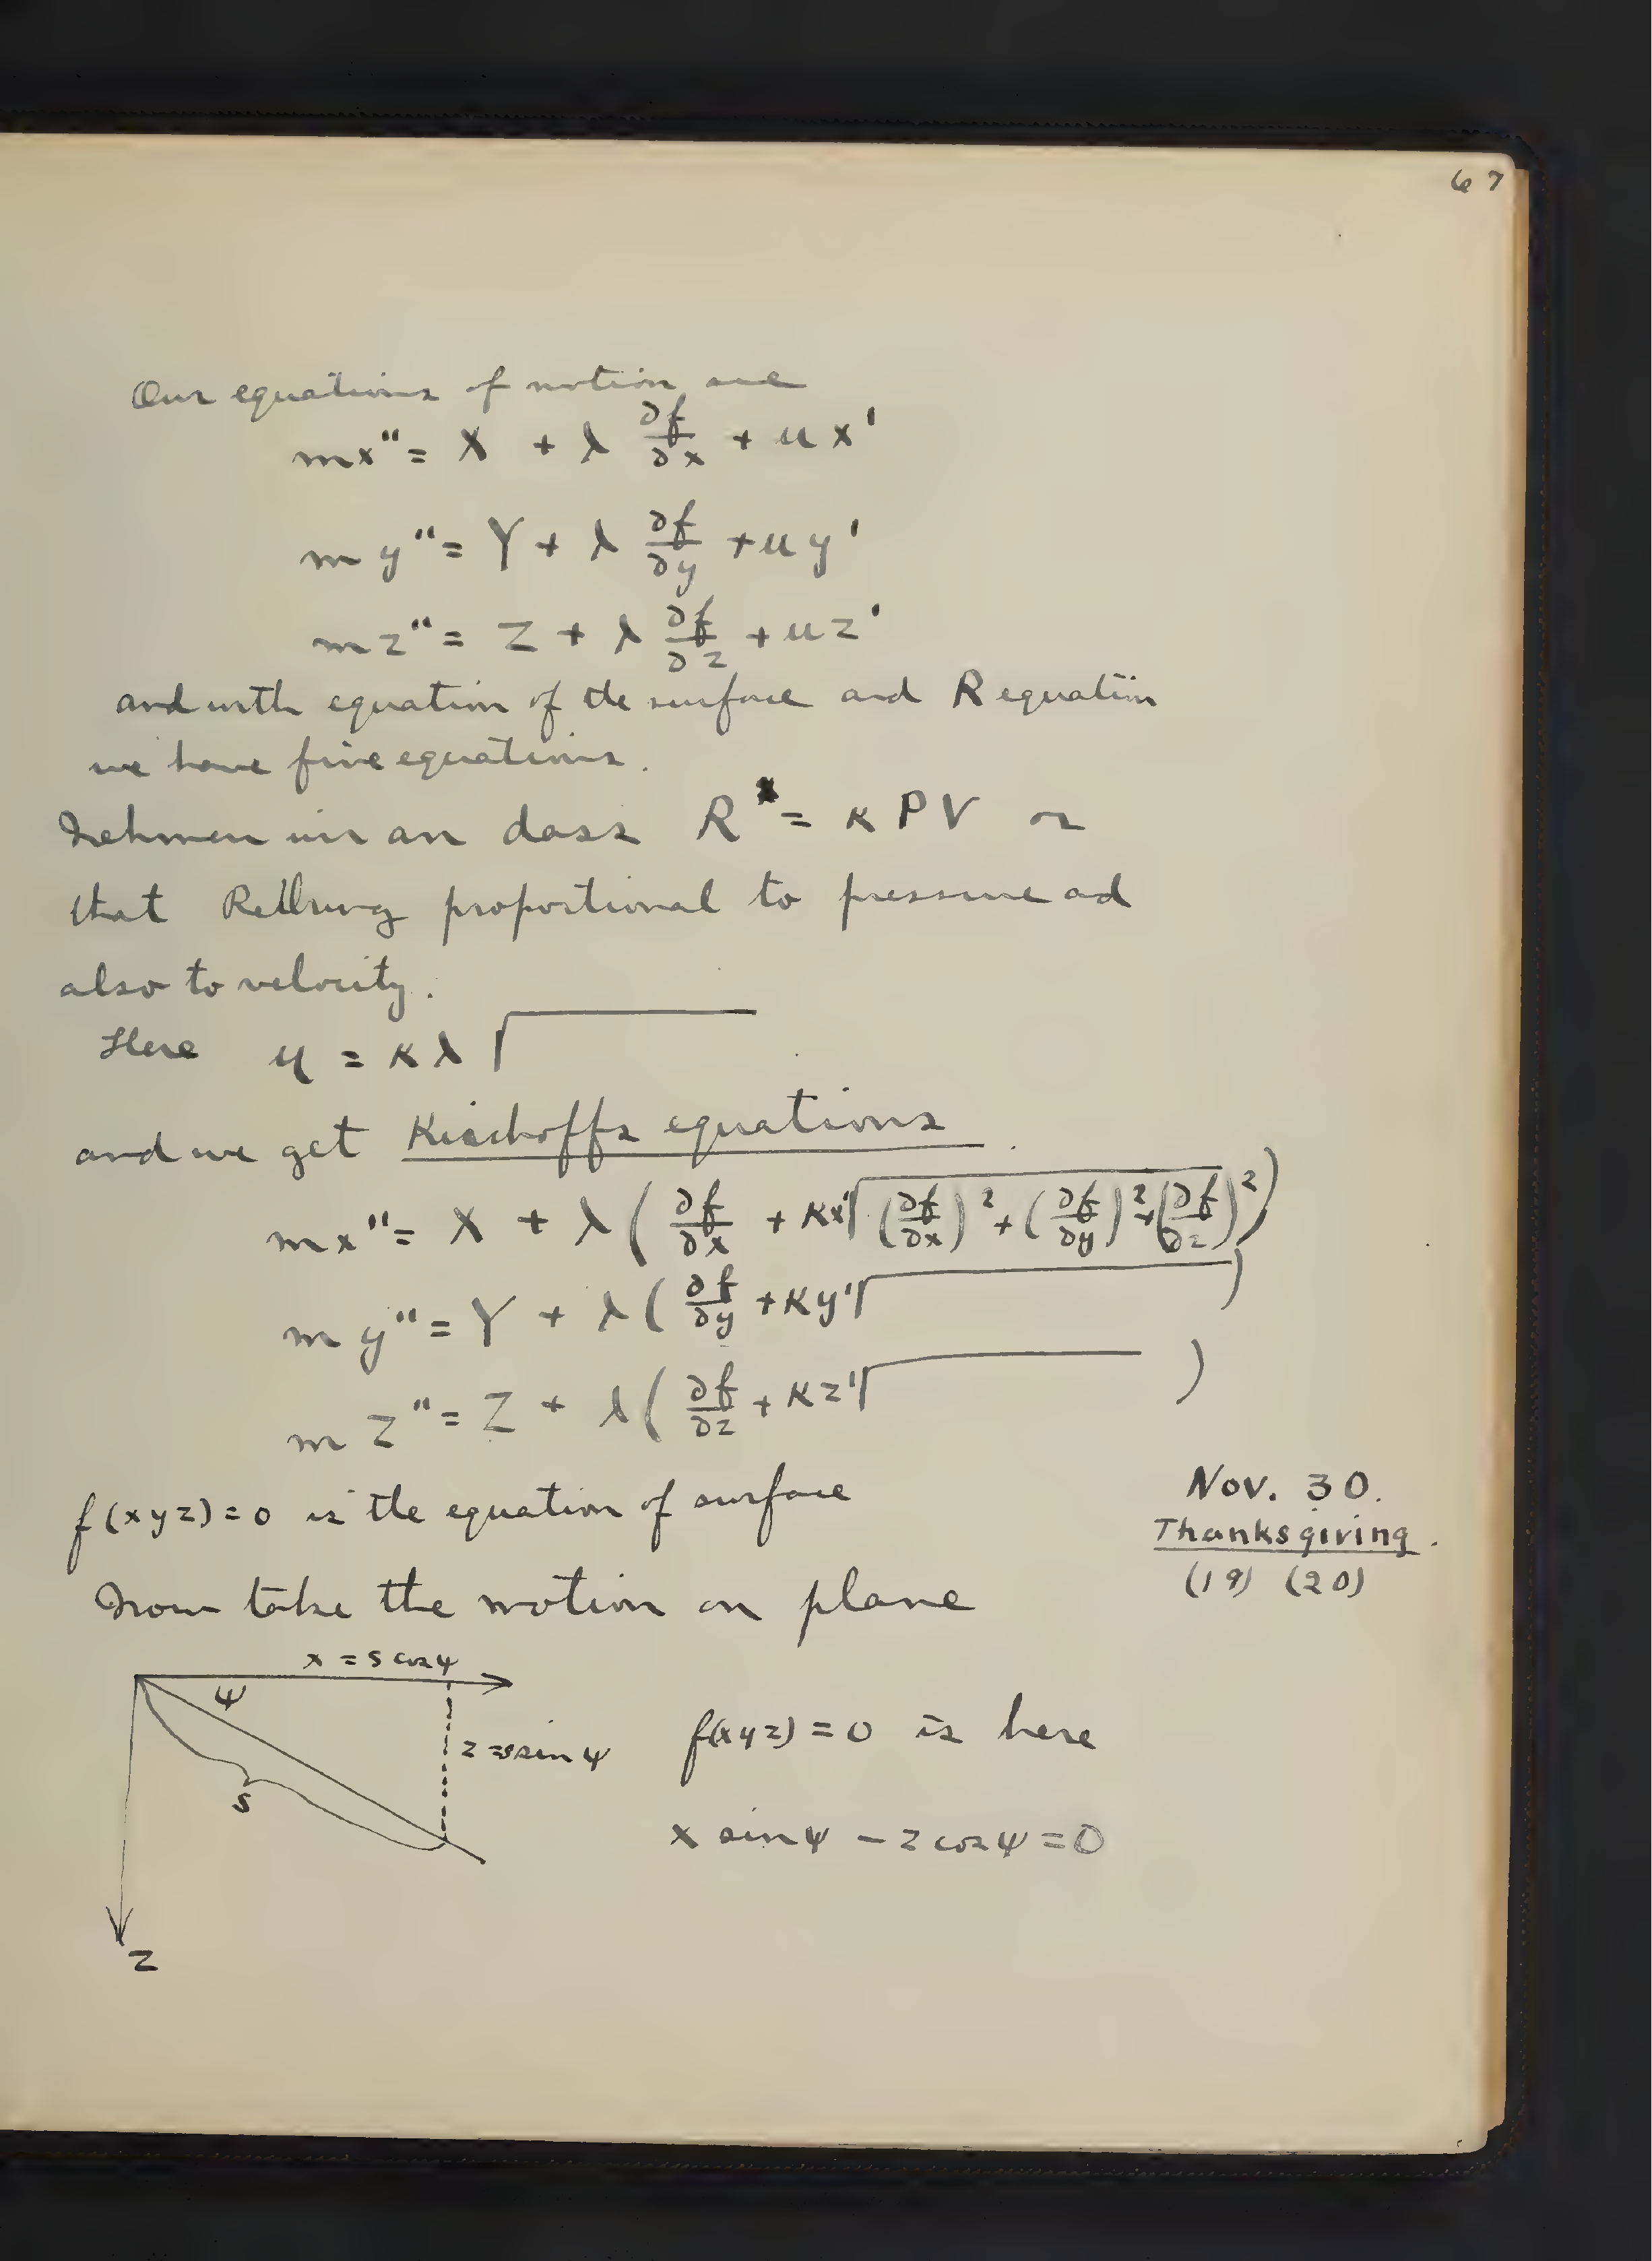 67
Our equations of motion are
mx" = X + λ ∂f/∂x + μx'
my" = Y + λ ∂f/∂y + μy'
mz" = Z + λ ∂f/∂z + μz'
and with equation of the surface and R equation
we have five equations.
Nehmen wir an dass R = κPV or
that Reibung proportional to pressure ad
also to velocity.
Here μ = κλ√
and we get Kirchoffs equations.
mx" = X + λ(∂f/∂x + κx'√((∂f/∂x)² + (∂f/∂y)² + (∂f/∂z)²))
my" = Y + λ(∂f/∂y + κy'√ )
mz" = Z + λ(∂f/∂z + κz'√ )
f(xyz) = 0 is the equation of surface
Nov. 30.
Thanksgiving.
(19) (20)
Now take the motion on plane
x = s cos ψ
ψ
z = s sin ψ
s
z
f(xyz) = 0 is here
x sin ψ – z cos ψ = 0